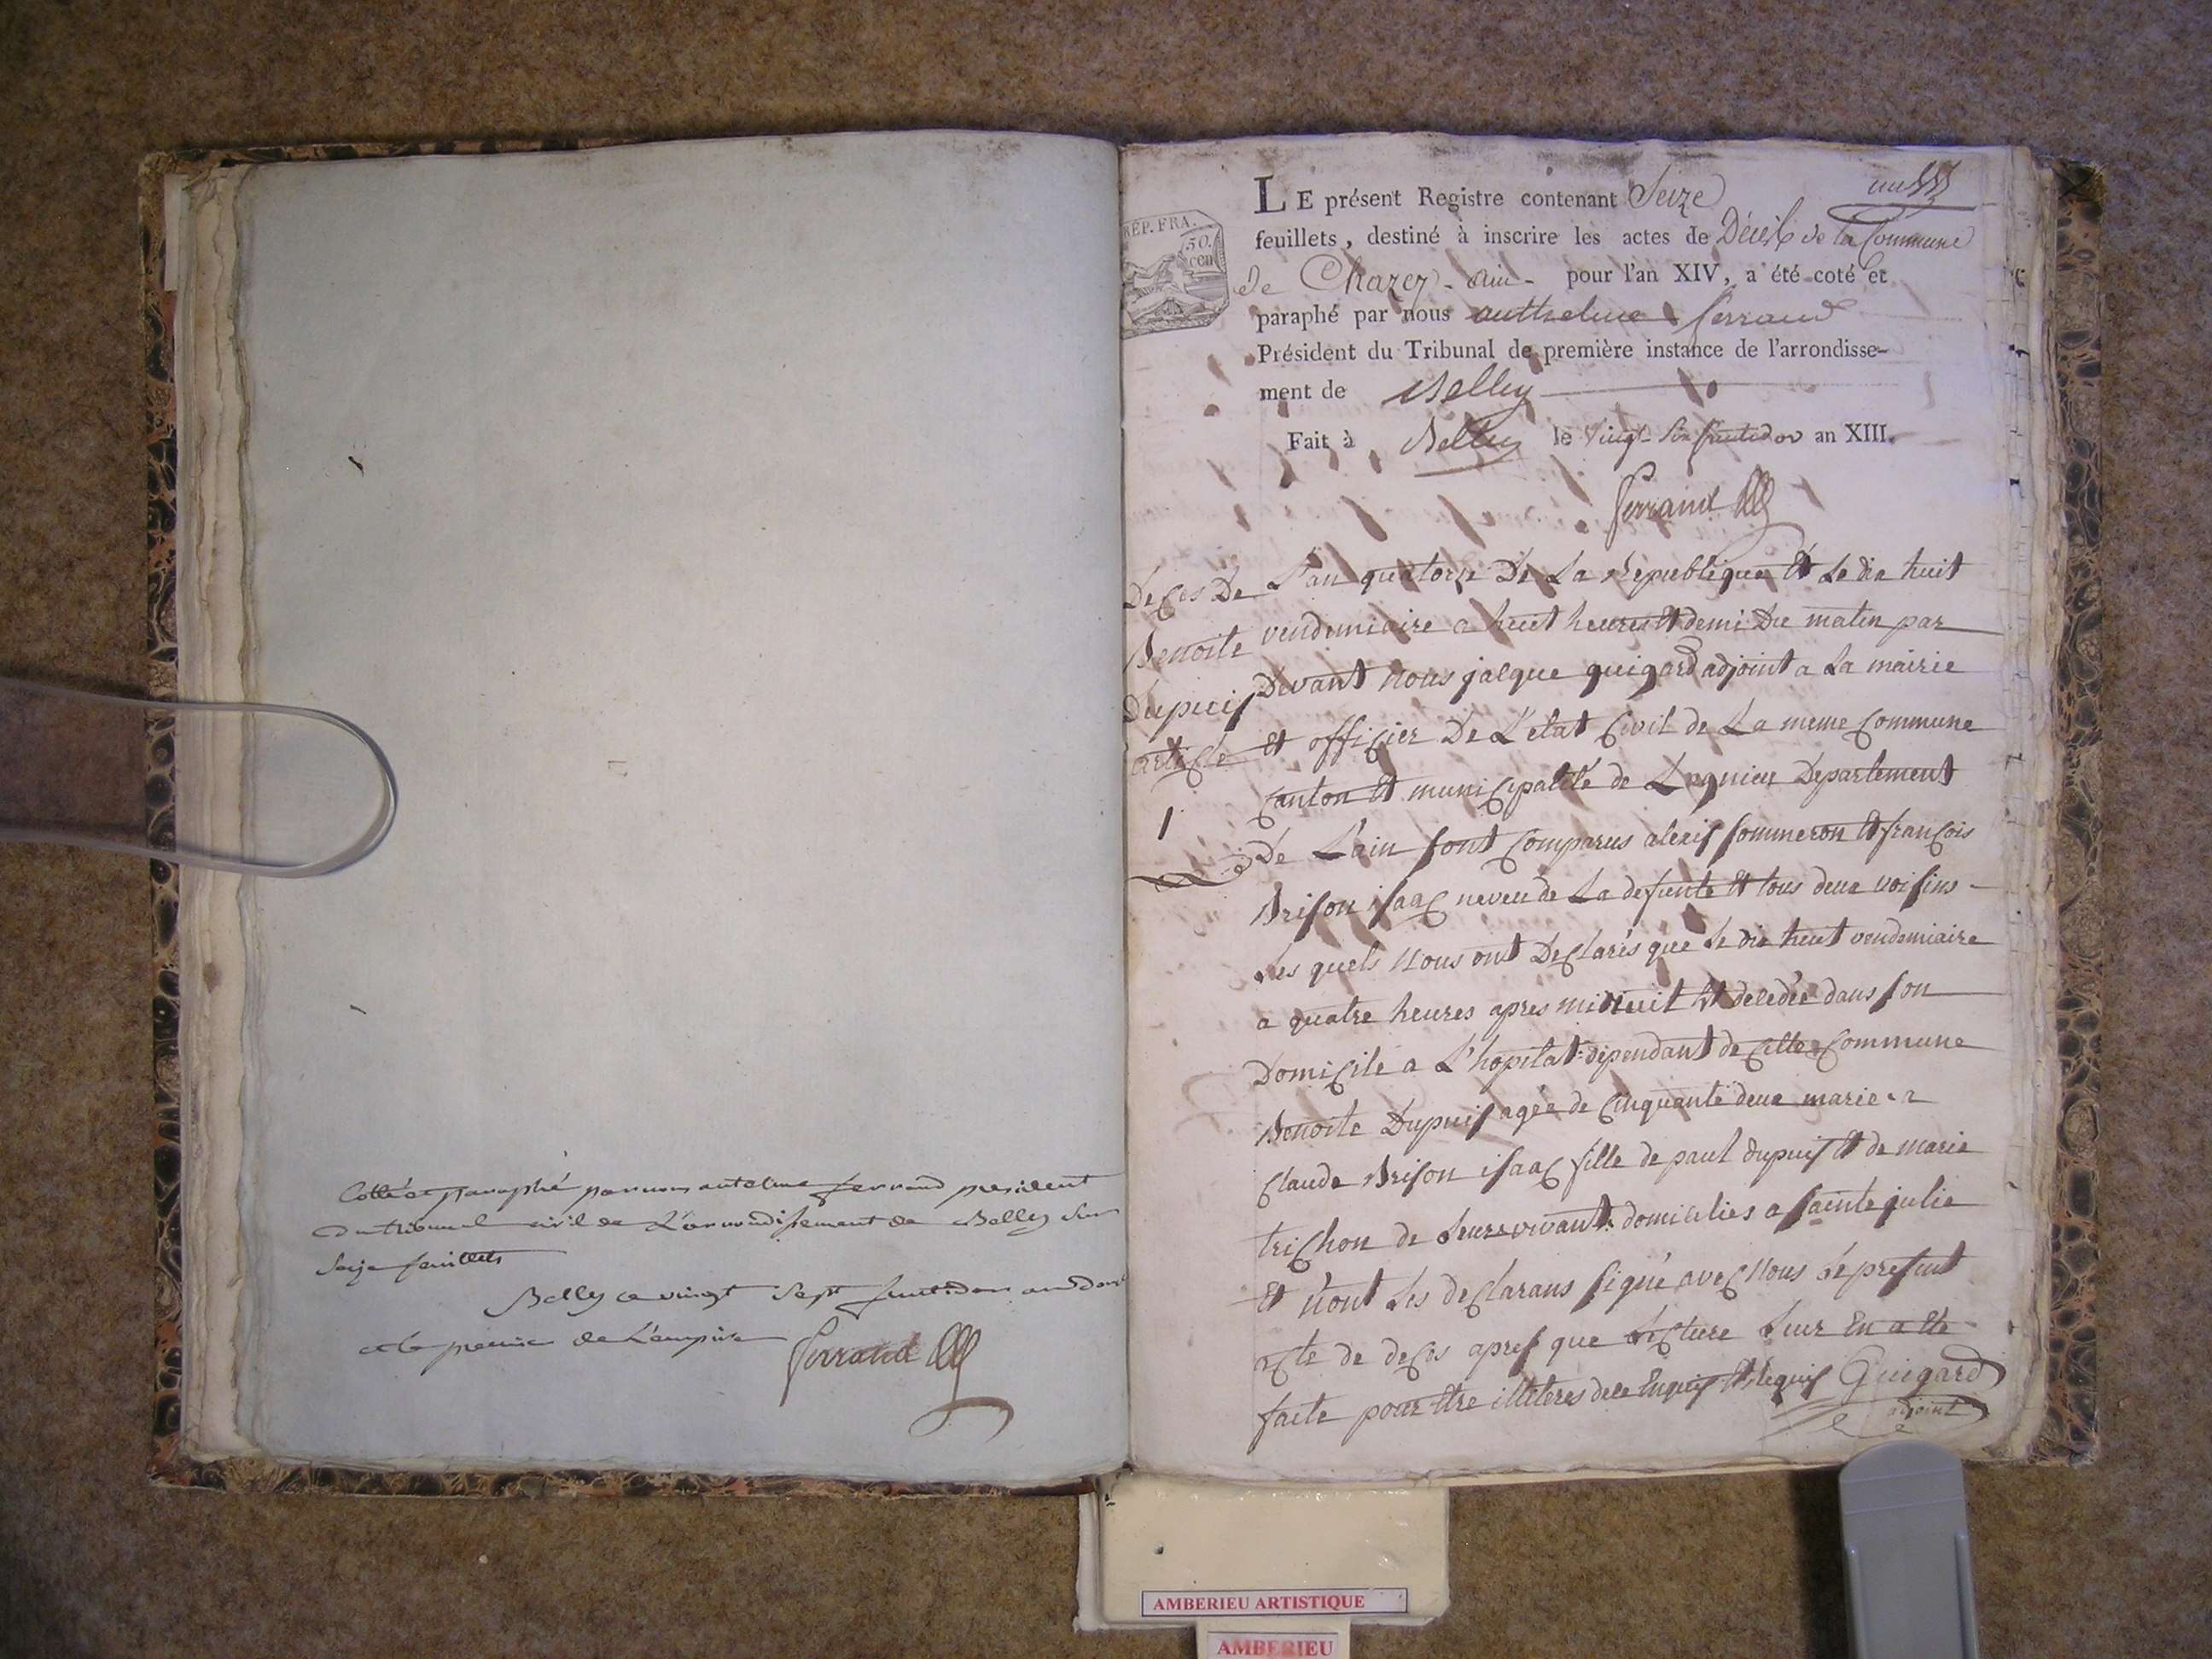 Cotté et paraphé par nous antelme ferrand president
du tribunal civil de L'arrondissement de Belley sur
seize feuillets
Belley ce vingt sept fructidor an douze
et le premier de L'empire
Ferrand
un
RÉP. FRA.
50.
cen
LE présent Registre contenant Seize
feuillets, destiné à inscrire les actes de Décès de la Commune
de Chazey - ain - pour l'an XIV, a été coté et
paraphé par nous anthelme ferrand
Président du Tribunal de première instance de l'arrondisse-
ment de Belley
Fait à Belley le vingt six fructidor an XIII.
ferrand
Deces De
Benoite
Dupuis
article
1
L'an quatorze De La Republique Et Le dix huit
vendemiaire a huit heures Et demi Du matin par
Devant Nous jacque guigard adjoint a La mairie
Et officier De L'etat Civil de La meme Commune
Canton Et municipalité de Lagnieu Departement
De L'ain sont Comparus alexis sommeron Et françois
Brison isaac neveu de La defunte Et tous deux voisins
Les quels Nous ont Declarés que Le dix huit vendemiaire
a quatre heures apres minuit Et decedée dans son
Domicile a L'hopital dependant de Cette Commune
Benoite Dupuis agée de Cinquante deux mariée a
Claude Brison isaac fille de paul dupuis Et de marie
trichon de Leurs vivant domicilies a sainte julie
Et n'ont Les declarans signé avec Nous Le present
acte de deces apres que Lecture Leur En a Ete
faite pour Etre illiteres de ce Enquis Et requis Guigard
adjoint
AMBERIEU ARTISTIQUE
AMBERIEU